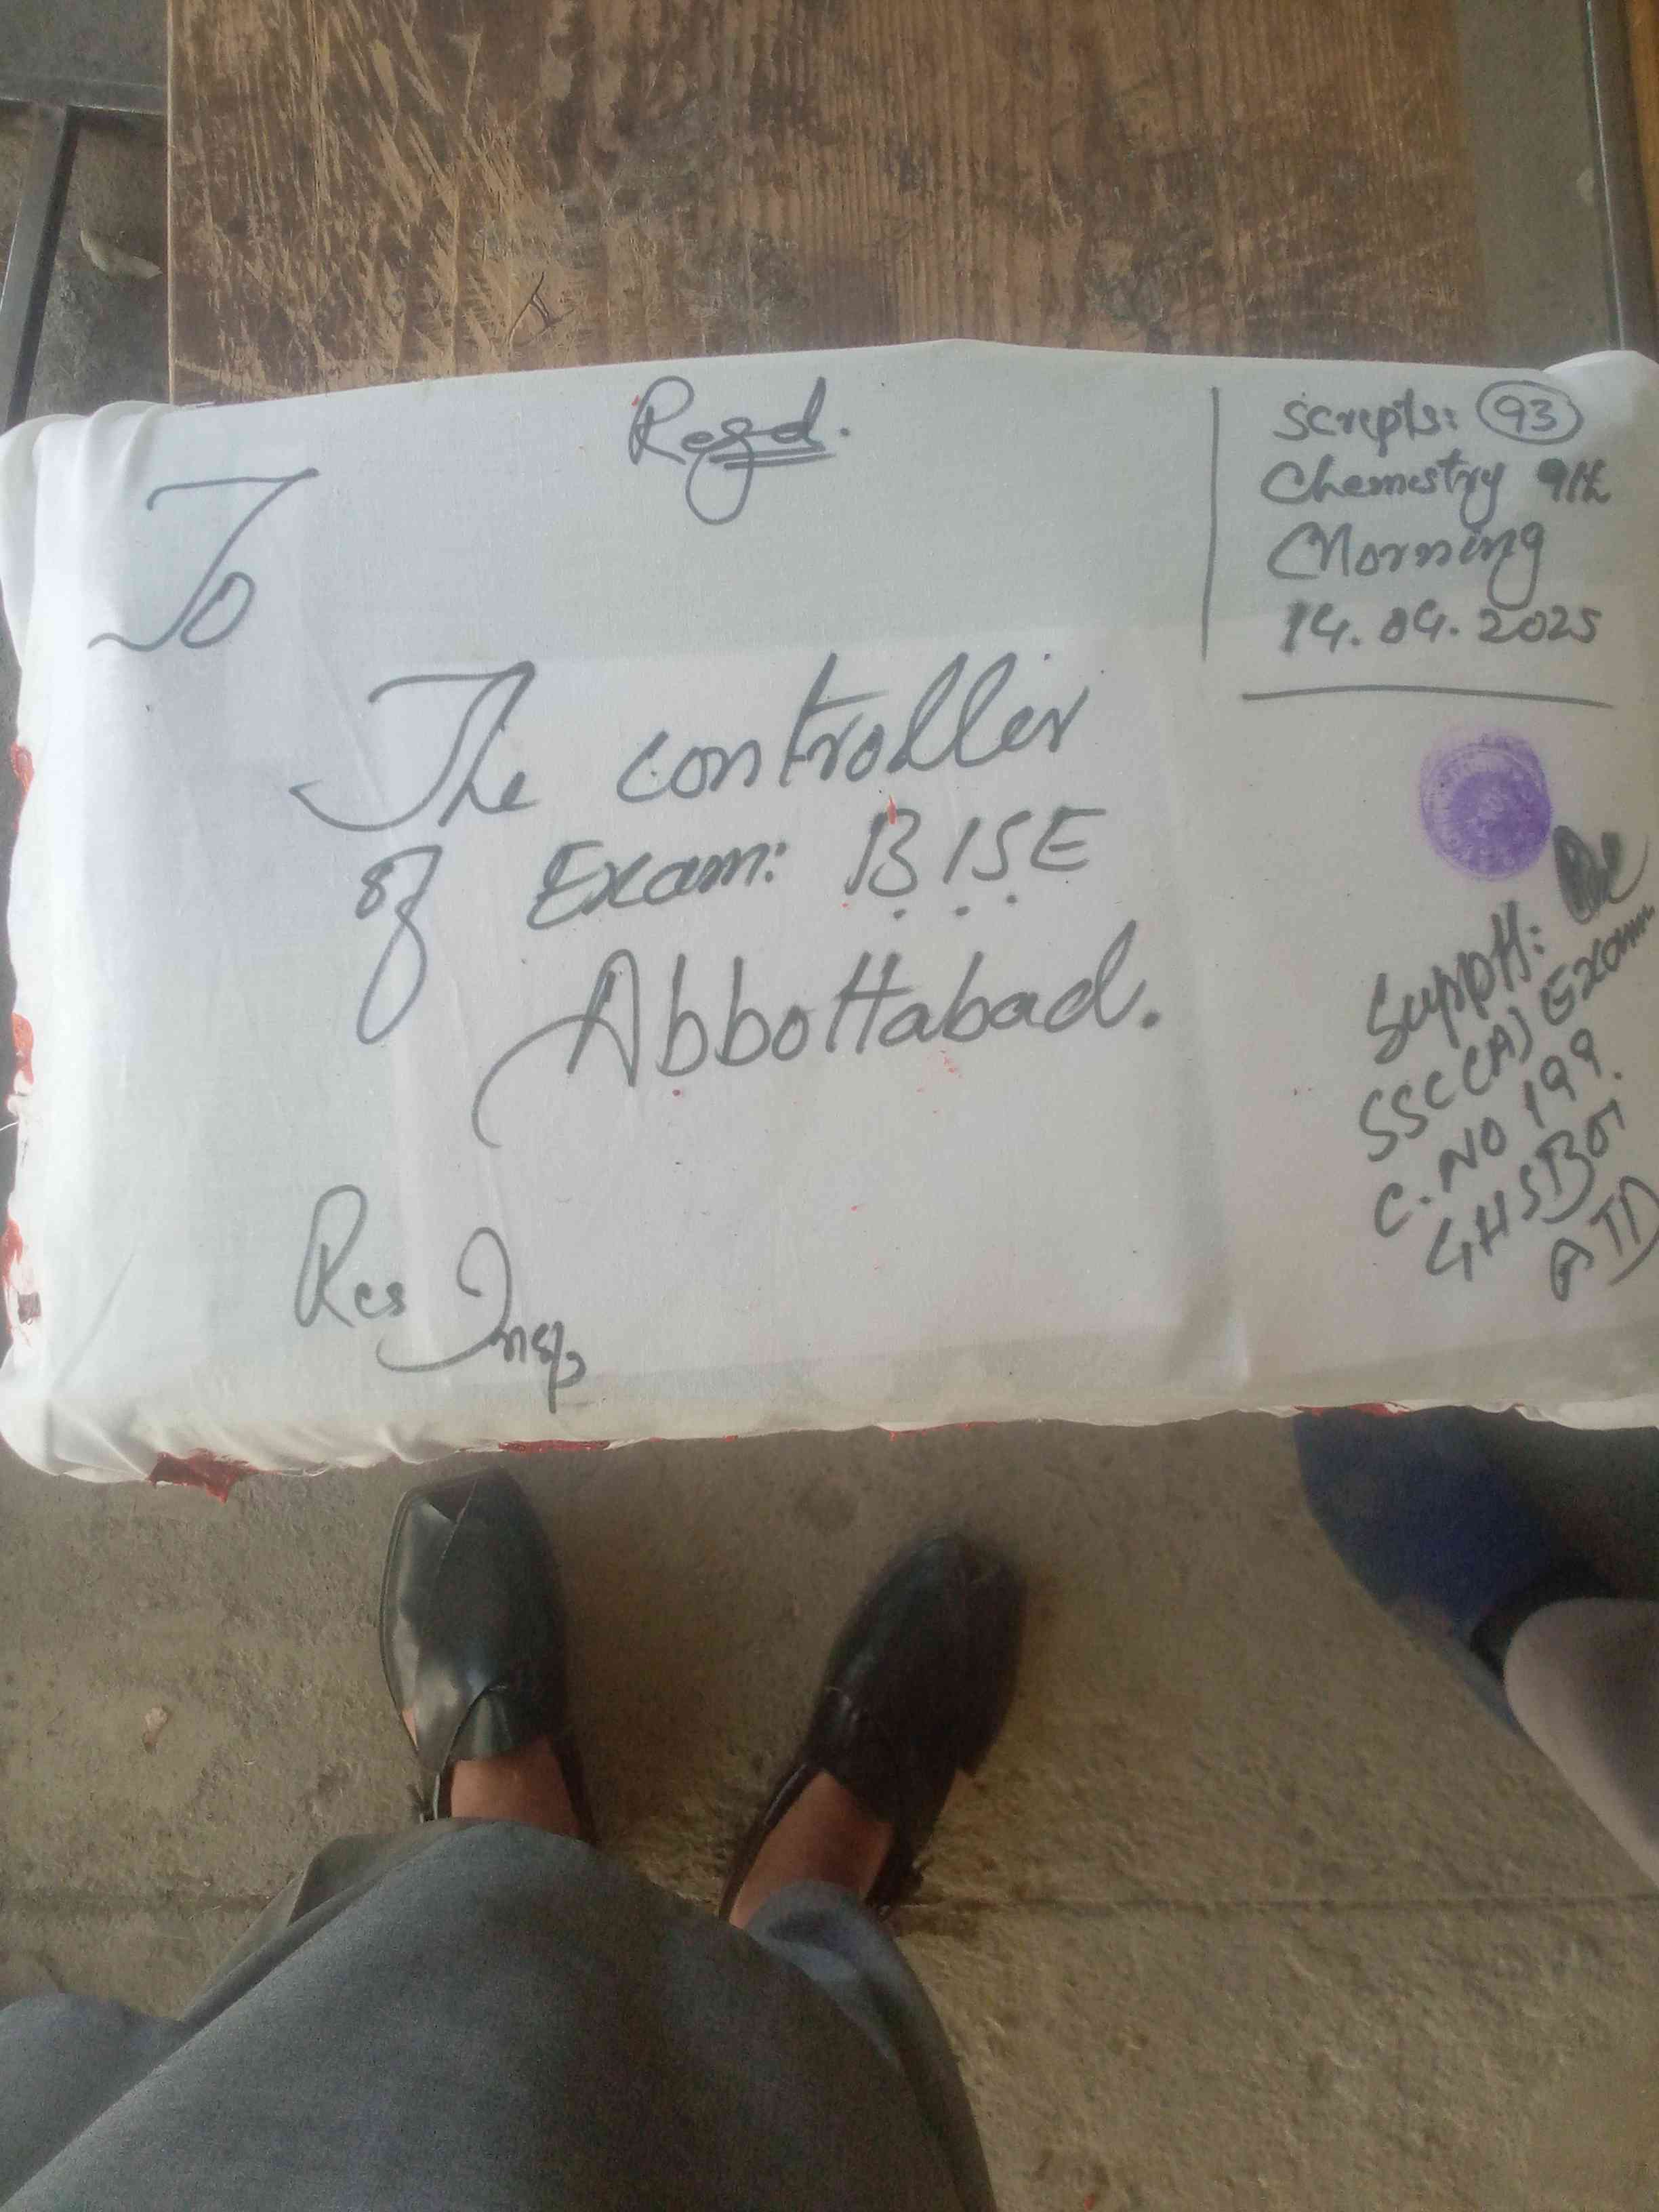 Regd.
To
The controller
of Exam: B.I.S.E
Abbottabad.
Res Insp
Scripts: 93
Chemistry 9th
Morning
14.04.2025
Supptt:
SSC(A) Exam
C. NO 199.
GHS
ATD